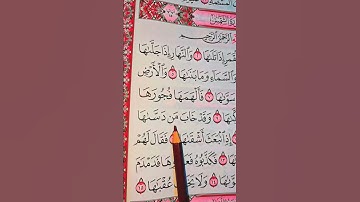 الرَّحْمَٰنِ الرَّحِيمِ
إِذَا تَلَىٰهَا ۝ وَالنَّهَارِ إِذَا جَلَّىٰهَا
وَالسَّمَاءِ وَمَا بَنَىٰهَا ۝ وَالْأَرْضِ
سَوَّىٰهَا ۝ فَأَلْهَمَهَا فُجُورَهَا
وَقَدْ خَابَ مَن دَسَّىٰهَا
إِذِ انۢبَعَثَ أَشْقَىٰهَا ۝ فَقَالَ لَهُمْ
فَكَذَّبُوهُ فَدَمْدَمَ
وَلَا يَخَافُ عُقْبَٰهَا